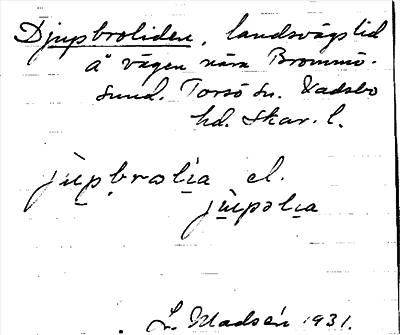 Djupbroliden, landsvägslid
å vägen nära Brommö-
sund. Torsö sn. Vadsbo
hd. Skar. l.
jùpbrolia el.
jùpolia
L. Madsén 1931.